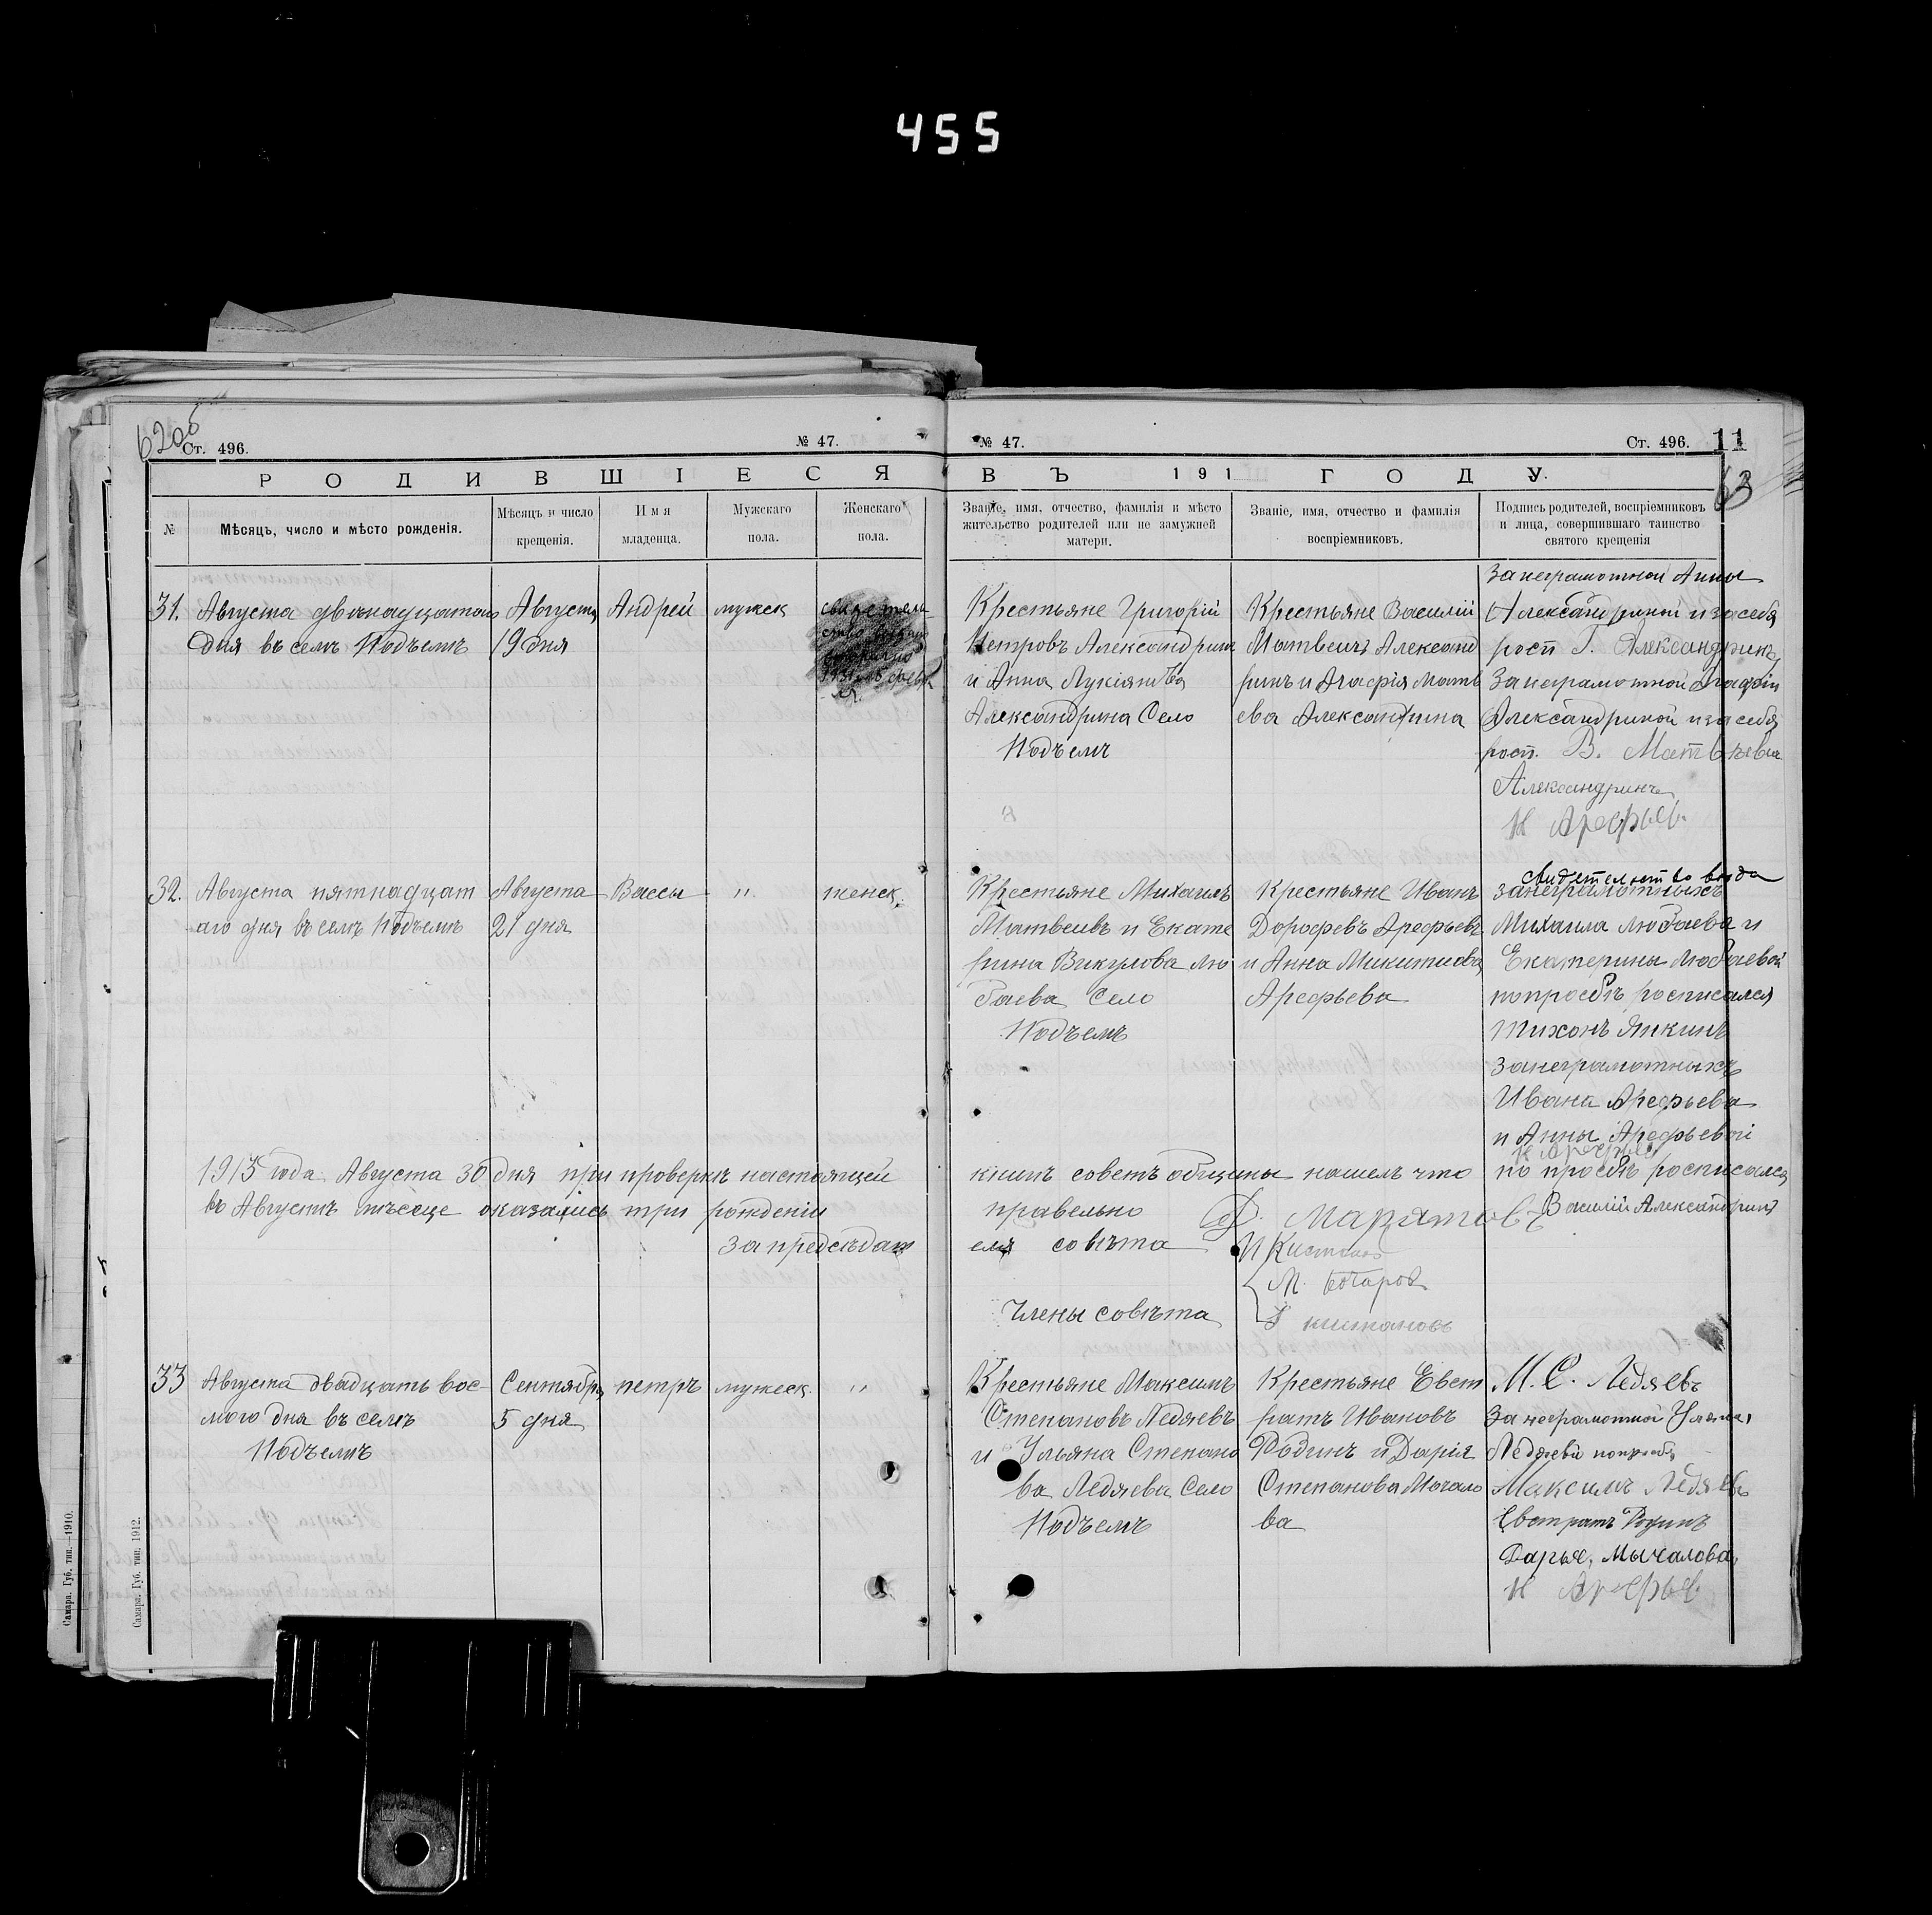 455
620об
Ст. 496.
№ 47.
РОДИВШІЕСЯ
№
Мѣсяцъ, число и мѣсто рожденія.
Мѣсяцъ и число
крещенія.
Имя
младенца.
Мужскаго
пола.
Женскаго
пола.
31.
Августа двѣнадцатого
дня въ селѣ Подъемъ
Августа
19 дня
Андрей
мужск
свидетель
32.
Августа пятнадцат
аго дня въ селѣ Подъемъ
Августа
21 дня
Вассы
"
женск.
1913 года Августа 30 дня при проверкѣ настоящей
въ Августѣ мѣсеце оказались три рожденіи
За председат
33
Августа двадцать вос-
мого дня въ селѣ
Подъемъ
Сентября
5 дня
петръ
мужеск.
"
Самара. Губ. тип.—1910.
Самара. Губ. тип. 1912.
№ 47.
Ст. 496.
11
63
ВЪ 191 ГОДУ.
Званіе, имя, отчество, фамилія и мѣсто
жительство родителей или не замужней
матери.
Званіе, имя, отчество и фамилія
воспріемниковъ.
Подпись родителей, воспріемниковъ
и лица, совершившаго таинство
святого крещенія
Крестьяне Григорій
Петровъ Александрин
и Анна Лукіянова
Александрина Село
Подъемъ
Крестьяне Василій
Матвеичъ Александ
ринъ и Агафія Матв
ева Александрина
За неграмотной Анны
Александриной и за себя
росп Г. Александринъ
За неграмотной Агафіи
Александриной и за себя
росп. В. Матвѣевъ
Александринъ
Н Арефьев.
Крестьяне Михаилъ
Матвеивъ и Екате
рина Викулова Лю
баева Село
Подъемъ
Крестьяне Иванъ
Дорофевъ Арефьевъ
и Анна Микитиова
Арефьева
за неграмотныхъ
Михаила Любаева и
Екатерины Любаевой
по просбѣ росписался
Тихонъ Янкинъ
за неграмотныхъ
Ивана Арефьева
и Анны Арефьевой
Н Арефьев
по просбѣ росписался
Василій Александринъ
книги советъ общины нашелъ что
правельно
Ф. Марятовъ
ель совѣта
Члены совѣта
Крестьяне Максимъ
Степановъ Ледяевъ
и Ульяна Степано
ва Ледяева Село
Подъемъ
Крестьяне Евст
ратъ Ивановъ
Родинъ и Дарія
Степанова Мочало
ва
М. С. Ледяевъ
За неграмотной Уляна,
Ледяевй по прозбѣ
Максимъ Ледяевъ
Евстратъ Родинъ
Дарья, Мычалова,
Н Арефьев